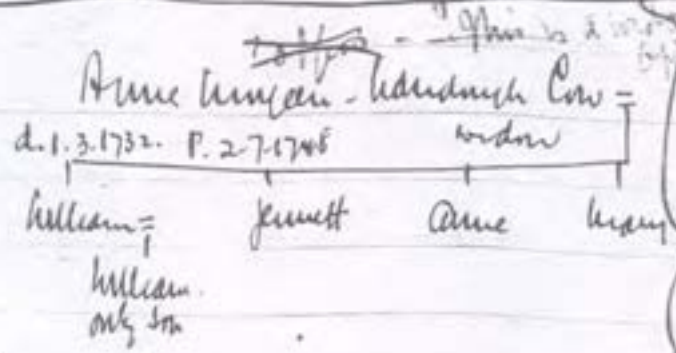 This is a
Anne Morgan - Llandough Cow =
d. 1.3.1732. P. 2-7-1746 widow
William = Jennett Anne Mary
William.
only son